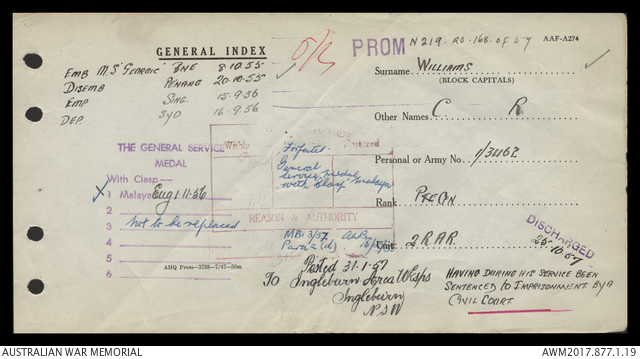 GENERAL INDEX
O/S
PROM N219. RO-168. OF 57
AAF-A274
EMB M.S "GEORGIC" BNE 8.10.55
DISEMB PENANG 20.10.55
EMP SING. 15-9.56
DEP. SYD 16-9.56
Surname WILLIAMS
(BLOCK CAPITALS)
Other Names C R
Personal or Army No.
Rank
Unit 2 RAR
THE GENERAL SERVICE
MEDAL
With Clasp—
X 1 Malaya Eng 1.11.56
2
3 Not to be replaced
4
5
6
Forfeited
General
Service medal
with clasp Malaya
REASON & AUTHORITY
MBI 3/57
Para 2 (d)
AHQ Prom—3788—7/47—50m
To Posted 31-1-57
Ingleburn Area W/Isps
Ingleburn
NSW
DISCHARGED
25-10-57
HAVING DURING HIS SERVICE BEEN
SENTENCED TO IMPRISONMENT BY A
CIVIL COURT
AUSTRALIAN WAR MEMORIAL
AWM2017.877.1.19